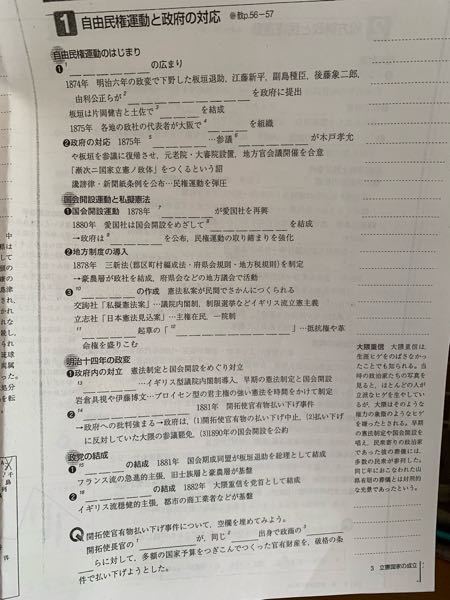 1 自由民権運動と政府の対応 教p.56－57
自由民権運動のはじまり
❶1＿＿＿＿＿＿の広まり
1874年 明治六年の政変で下野した板垣退助、江藤新平、副島種臣、後藤象二郎、
由利公正らが2＿＿＿＿＿＿を政府に提出
板垣は片岡健吉と土佐で3＿＿＿を結成
1875年 各地の政社の代表者が大阪で4＿＿＿を組織
❷政府の対応 1875年 5＿＿＿＿…参議6＿＿＿＿が木戸孝允
や板垣を参議に復帰させ、元老院・大審院設置、地方官会議開催を合意
「漸次ニ国家立憲ノ政体」をつくるという詔
讒謗律・新聞紙条例を公布…民権運動を弾圧
国会開設運動と私擬憲法
❶国会開設運動 1878年 7＿＿＿＿が愛国社を再興
1880年 愛国社は国会開設をめざして8＿＿＿＿＿＿を結成
→政府は9＿＿＿＿を公布、民権運動の取り締まりを強化
❷地方制度の導入
1878年 三新法（郡区町村編成法・府県会規則・地方税規則）を制定
→豪農層が政社を結成、府県会などの地方議会で活動
❸10＿＿＿＿の作成 憲法私案が民間でさかんにつくられる
交詢社「私擬憲法案」…議院内閣制、制限選挙などイギリス流立憲主義
立志社「日本憲法見込案」…主権在民、一院制
11＿＿＿＿起草の「12＿＿＿＿＿＿」…抵抗権や革
命権を盛りこむ
明治十四年の政変
❶政府内の対立 憲法制定と国会開設をめぐり対立
13＿＿＿＿…イギリス型議院内閣制導入、早期の憲法制定と国会開設
岩倉具視や伊藤博文…プロイセン型の君主権の強い憲法を時間をかけて制定
❷14＿＿＿＿＿＿ 1881年 開拓使官有物払い下げ事件
→政府への批判強まる→政府は、(1)開拓使官有物の払い下げ中止、(2)払い下げ
に反対していた大隈の参議罷免、(3)1890年の国会開設を公約
政党の結成
❶15＿＿＿の結成 1881年 国会期成同盟が板垣退助を総理として結成
フランス流の急進的主張、旧士族層と豪農層が基盤
❷16＿＿＿＿＿の結成 1882年 大隈重信を党首として結成
イギリス流穏健的主張、都市の商工業者などが基盤
Q 開拓使官有物払い下げ事件について、空欄を埋めてみよう。
開拓使長官の1＿＿＿＿が、同じ2＿＿出身で政商の3＿＿
＿＿らに対して、多額の国家予算をつぎこんでつくった官有財産を、破格の条
件で払い下げようとした。
大隈重信 大隈重信は、
生涯ヒゲをのばさなかっ
たことでも知られる。当
時の政治家たちの写真を
見ると、ほとんどの人が
立派なヒゲを生やしてい
るが、大隈はそのような
権力の象徴のようなヒゲ
を嫌ったとされる。早期
の憲法制定や国会開設を
唱え、民衆寄りの政治家
であった彼の葬儀には、
多数の民衆が参列した。
同じ年におこなわれた山
県有朋の葬儀とは対照的
な光景であったという。
3 立憲国家の成立